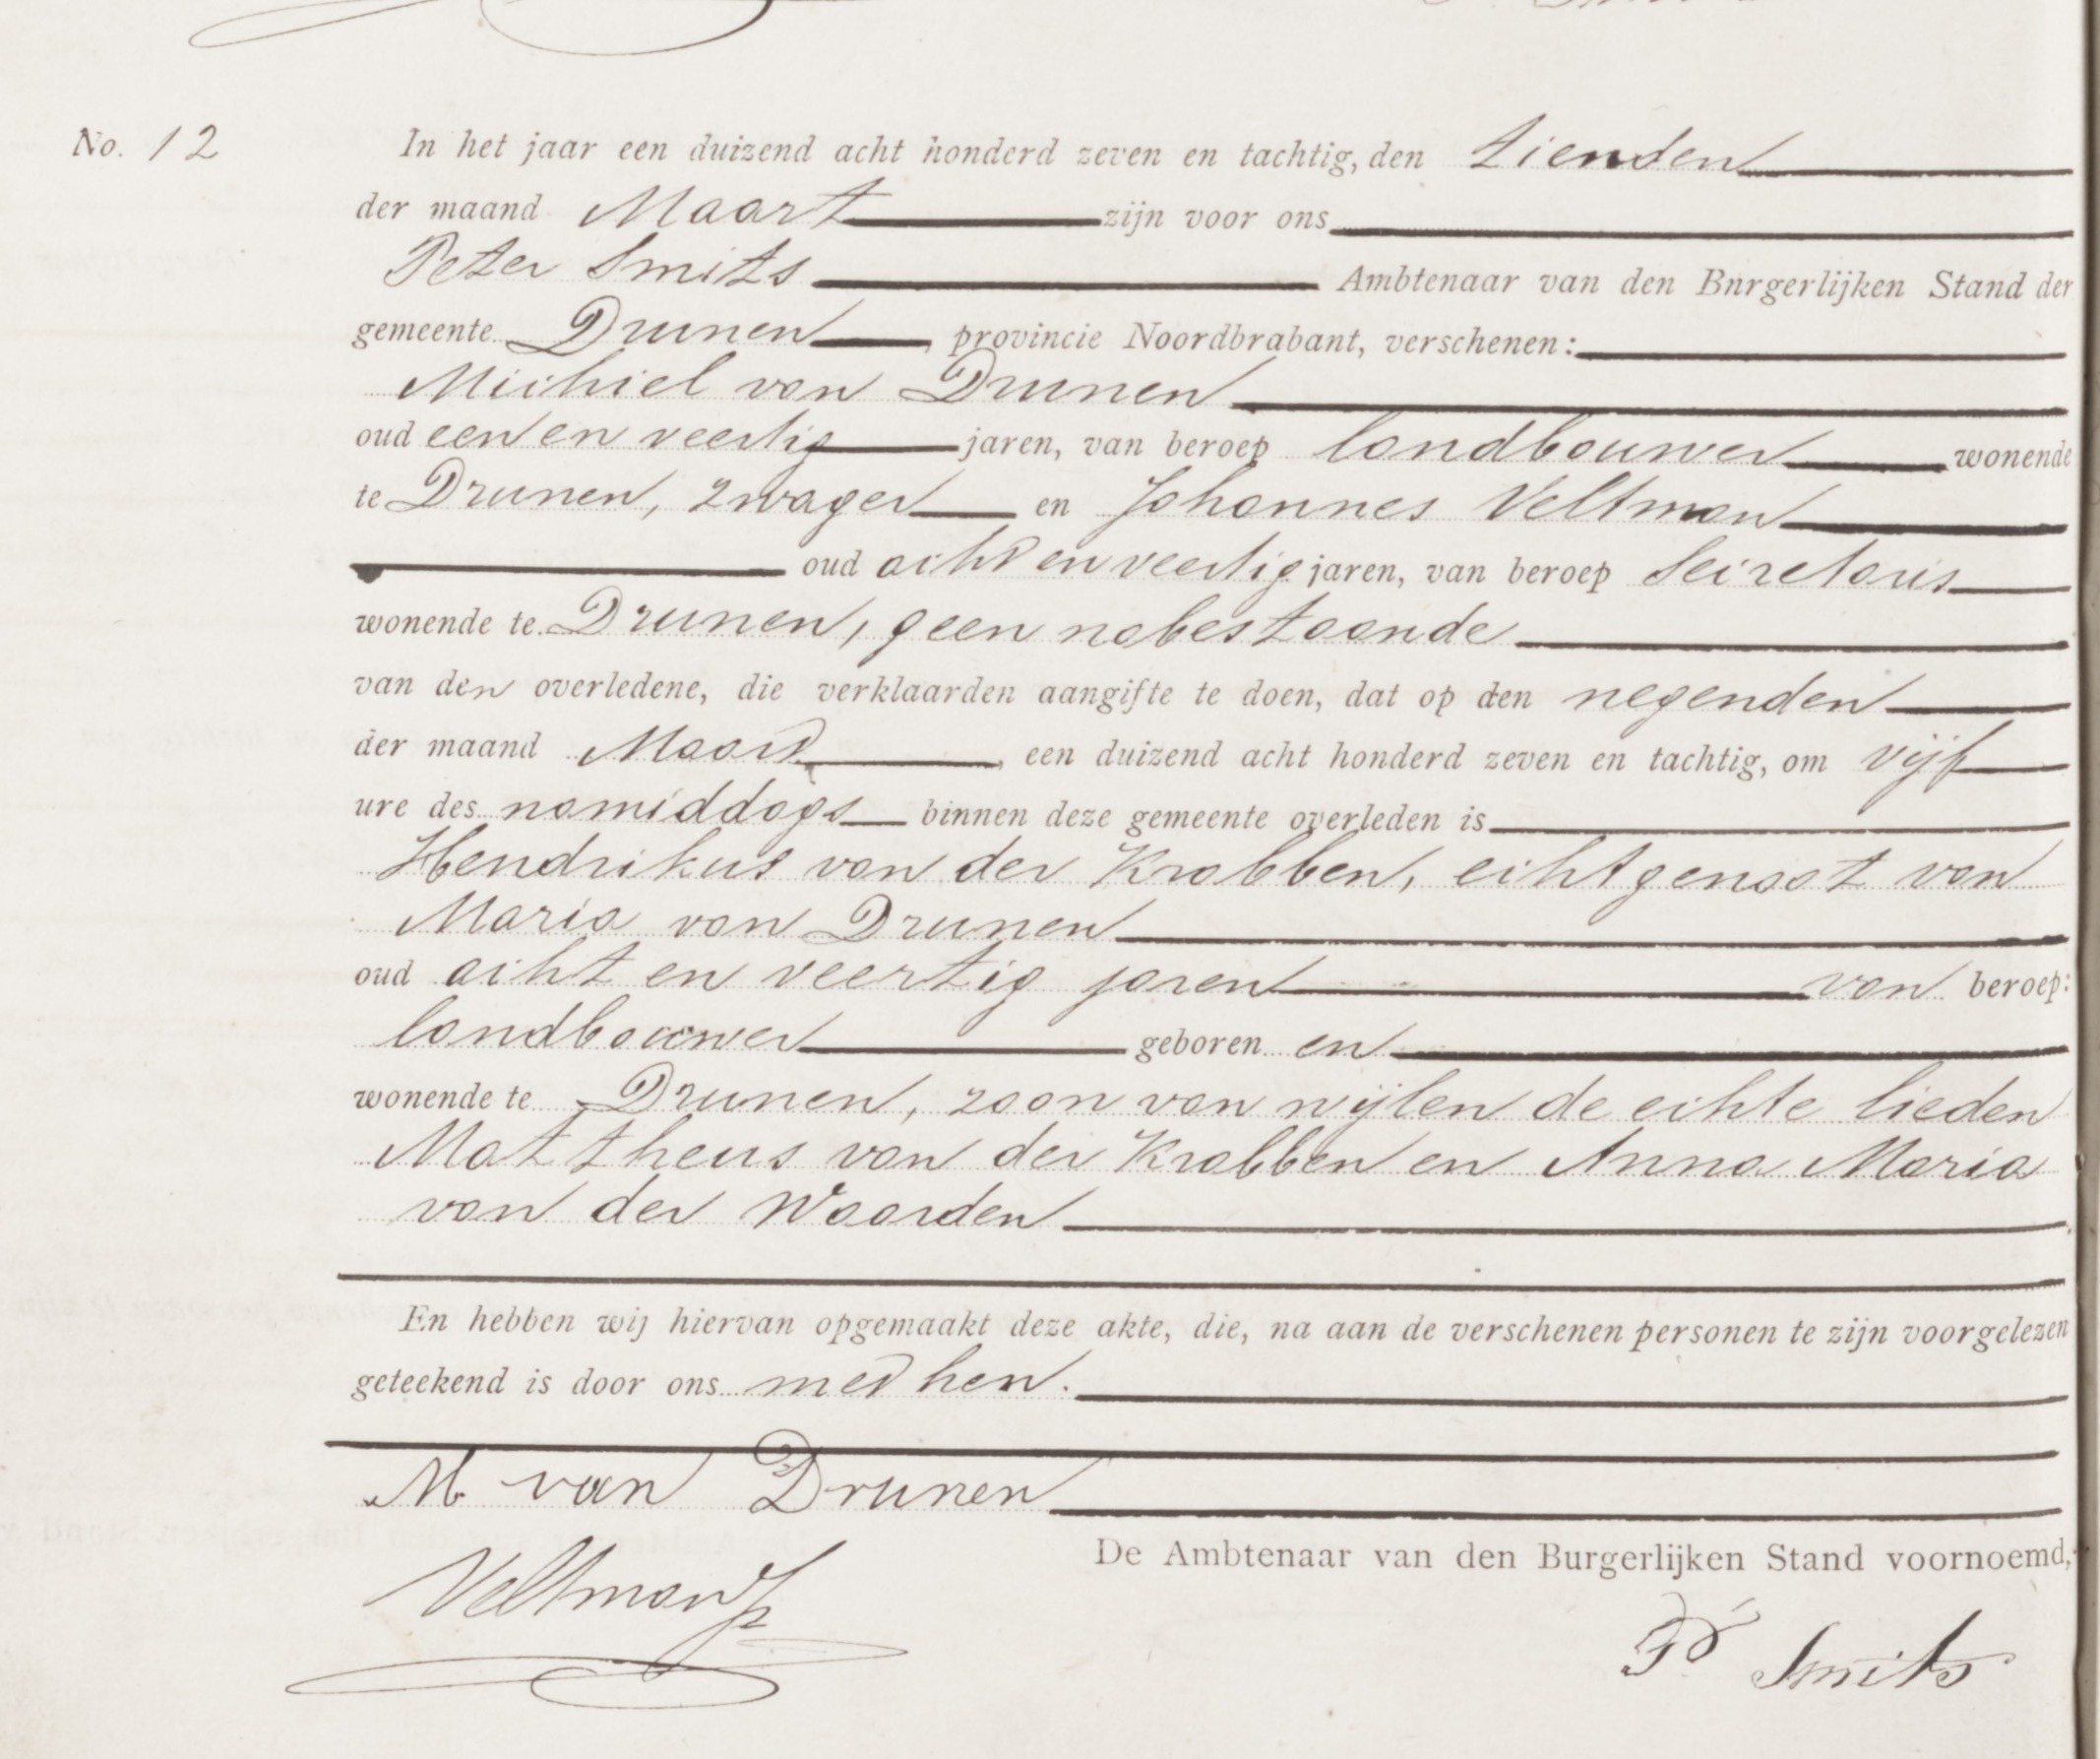 No. 12
In het jaar een duizend acht honderd zeven en tachtig, den tienden
der maand Maart zijn voor ons
Peter Smits Ambtenaar van den Bnrgerlijken Stand der
gemeente Drunen, provincie Noordbrabant, verschenen:
Michiel van Drunen
oud een en veertig jaren, van beroep landbouwer wonende
te Drunen, zwager en Johannes Veltman
oud acht en veertig jaren, van beroep Secretaris
wonende te Drunen, geen nabestaande
van den overledene, die verklaarden aangifte te doen, dat op den negenden
der maand Maart, een duizend acht honderd zeven en tachtig, om vijf
ure des namiddags binnen deze gemeente overleden is
Hendrikus van der Krabben, echtgenoot van
Maria van Drunen
oud acht en veertig jaren van beroep:
landbouwer geboren en
wonende te Drunen, zoon van wijlen de echte lieden
Mattheus van der Krabben en Anna Maria
van der Waarden
En hebben wij hiervan opgemaakt deze akte, die, na aan de verschenen personen te zijn voorgelezen
geteekend is door ons met hen.
M. van Drunen
De Ambtenaar van den Burgerlijken Stand voornoemd,
Veltman
P. Smits